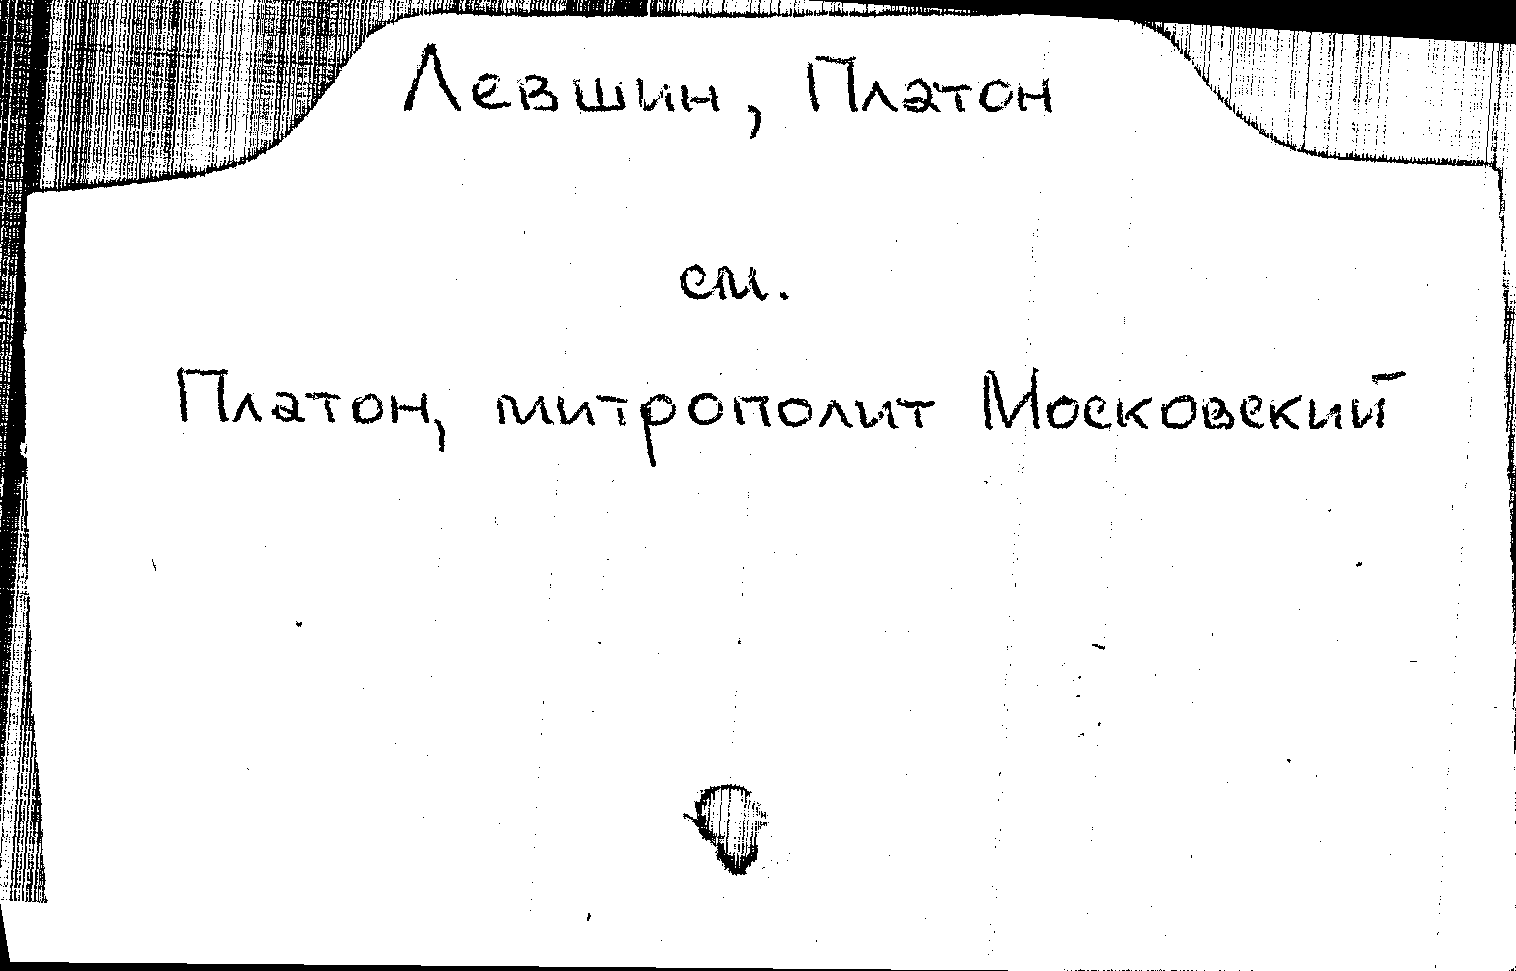 Левшин, Платон
см.
Платон, митрополит Московский